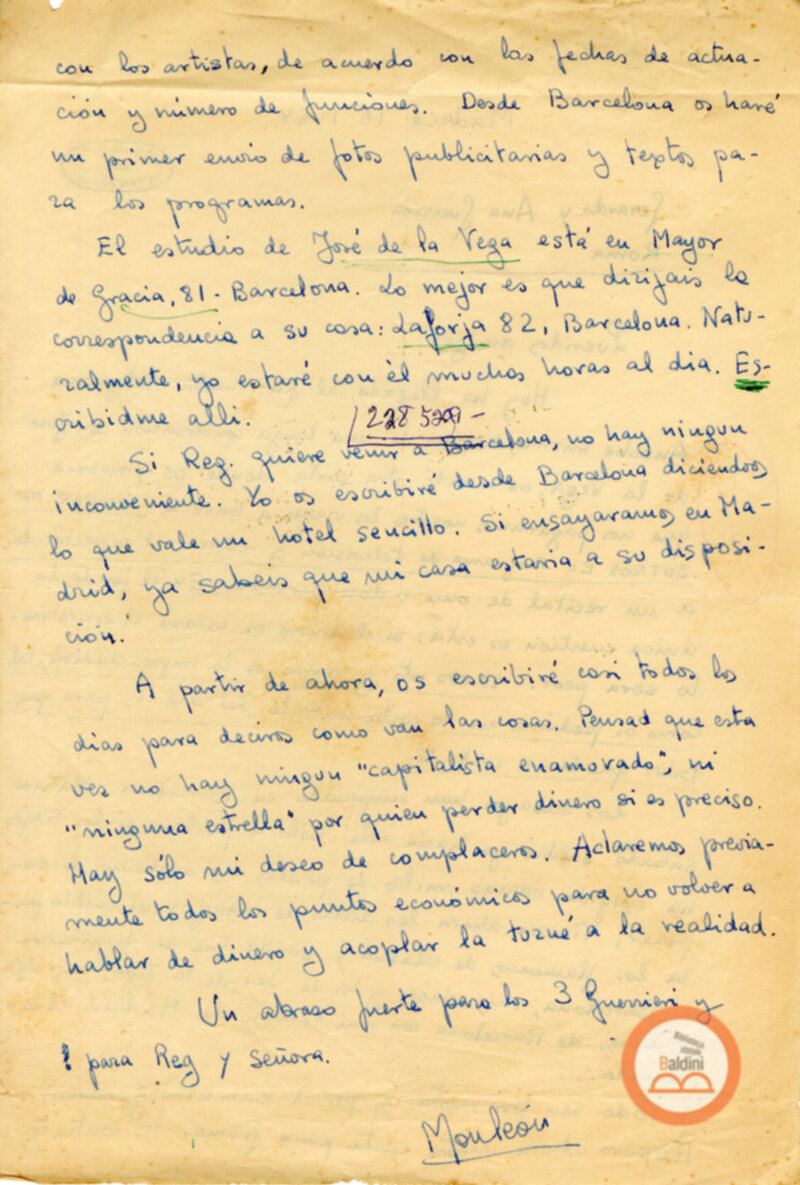 con los artistas, de acuerdo con las fechas de actua-
ción y número de funciones. Desde Barcelona os haré
un primer envio de fotos publicitarias y textos pa-
ra los programas.
El estudio de José de la Vega está en Mayor
de Gracia, 81 - Barcelona. Lo mejor es que dirijais la
correspondencia a su casa: Laforja 82, Barcelona. Natu-
ralmente, yo estaré con él muchas horas al dia. Es-
cribidme alli.
228529-
Si Reg. quiere venir a Barcelona, no hay ningun
inconveniente. Yo os escribiré desde Barcelona diciendoos
lo que vale un hotel sencillo. Si ensayaramos en Ma-
drid, ya sabeis que mi casa estaria a su disposi-
ción.
A partir de ahora, os escribiré casi todos los
dias para deciros como van las cosas. Pensad que esta
vez no hay ningun "capitalista enamorado", ni
"ninguna estrella" por quien perder dinero si es preciso.
Hay sólo mi deseo de complaceros. Aclaremos previa-
mente todos los puntos económicos para no volver a
hablar de dinero y acoplar la turné a la realidad.
Un abraso fuerte para los 3 Guerrieri y
para Reg y Señora.
Monleón
Biblioteca
statale
Baldini